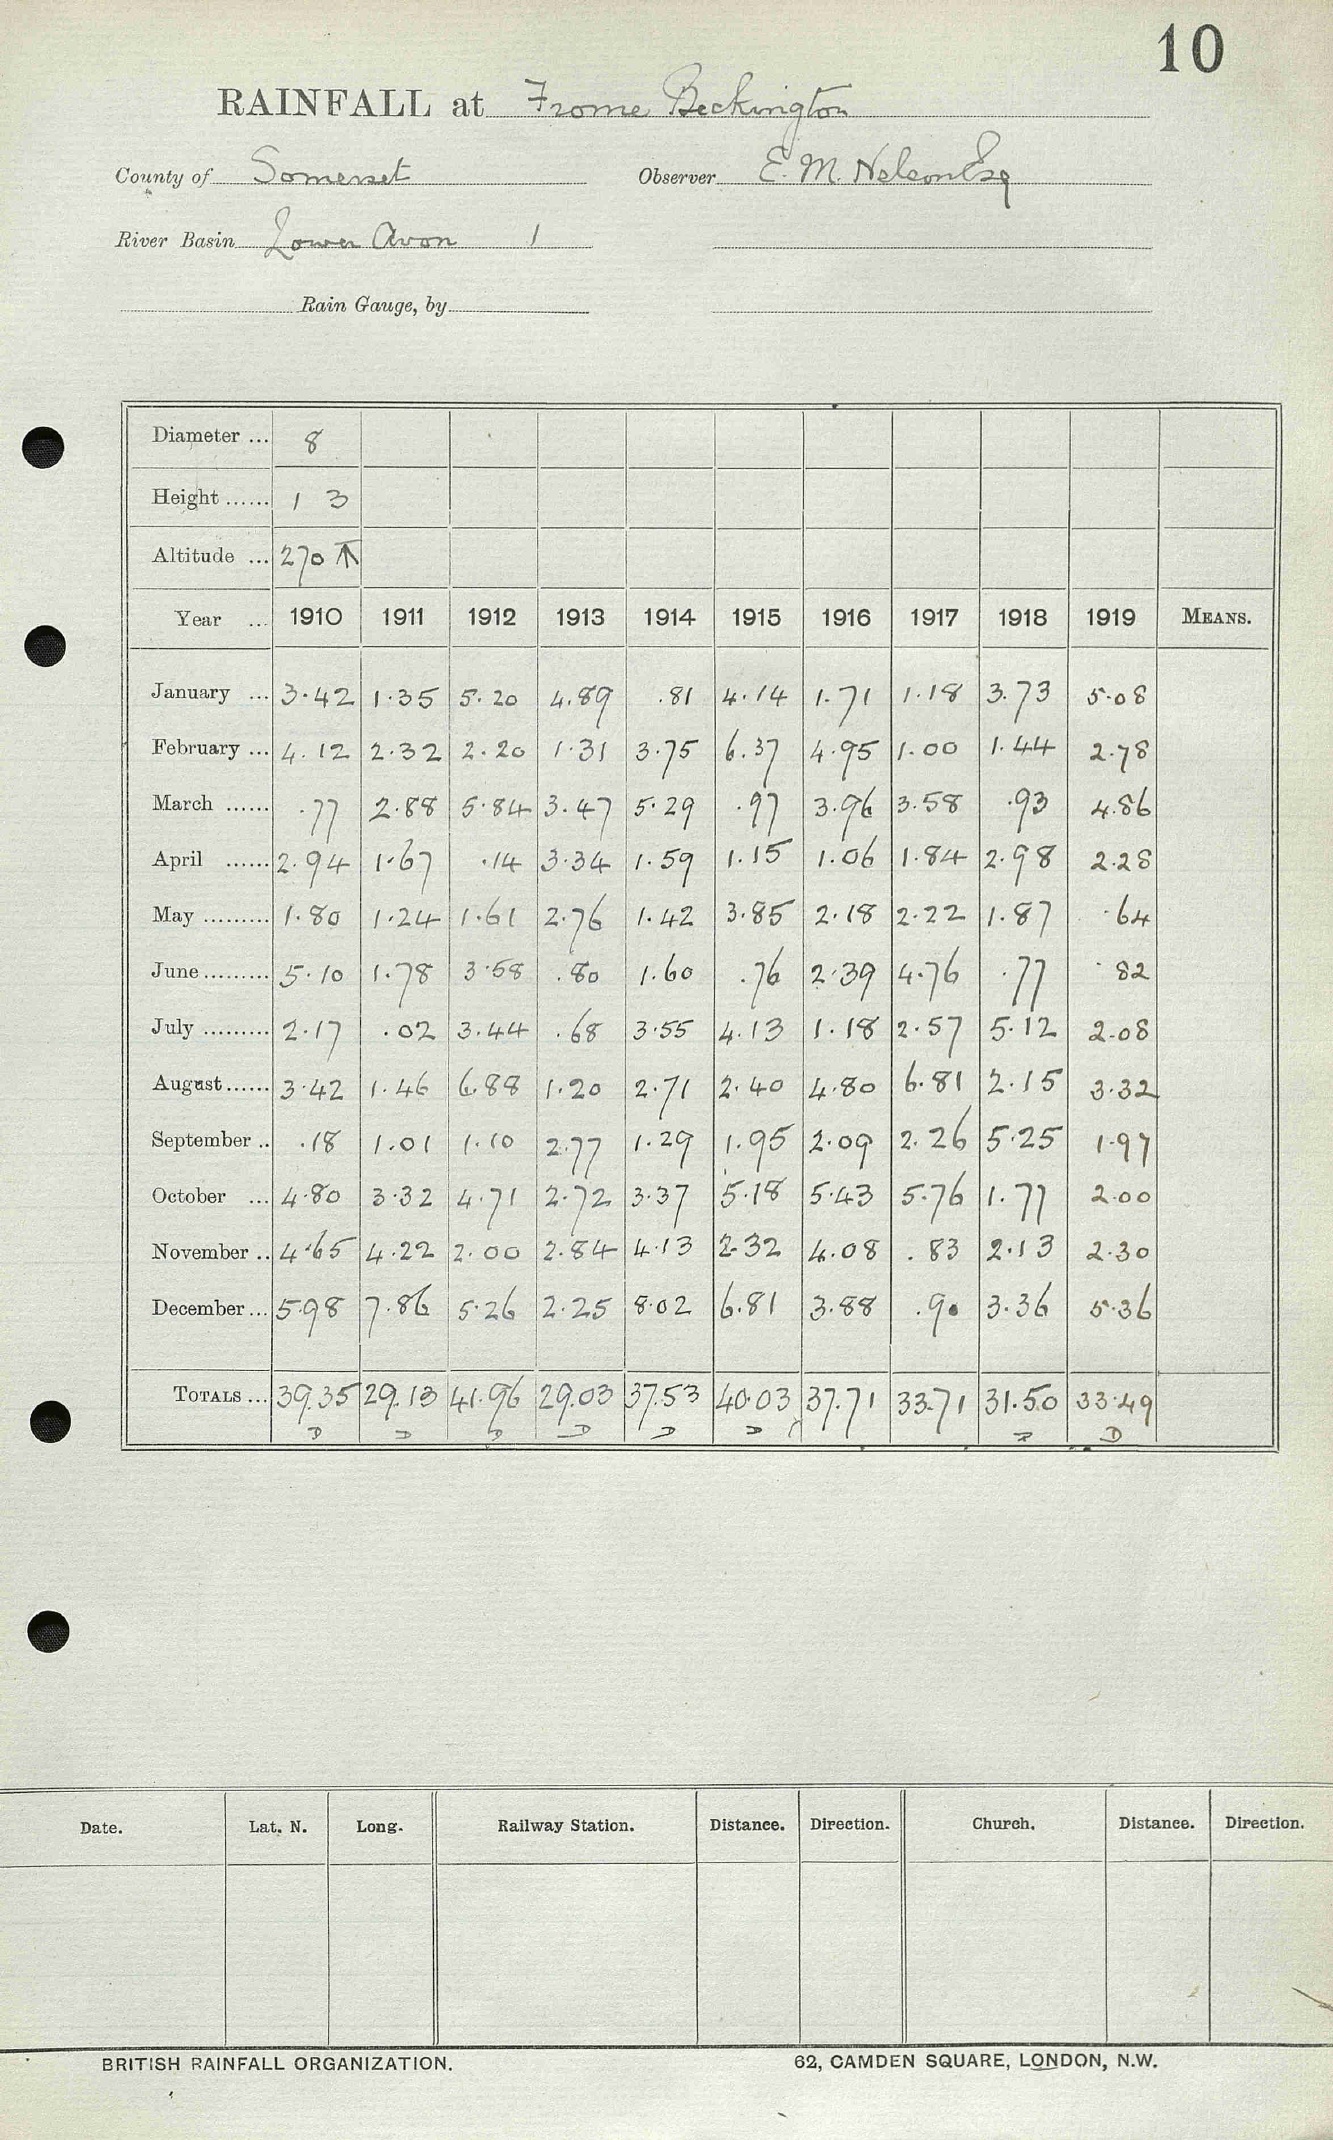 10
RAINFALL at Frome Beckington
County of Somerset Observer E. M. Nelson Esq
River Basin Lower Avon 1
Rain Gauge, by
Diameter ... 8
Height ...... 1 3
Altitude ... 270 ↑
Year ... 1910 1911 1912 1913 1914 1915 1916 1917 1918 1919 MEANS.
January ... 3.42 1.35 5.20 4.89 .81 4.14 1.71 1.18 3.73 5.08
February ... 4.12 2.32 2.20 1.31 3.75 6.37 4.95 1.00 1.44 2.78
March ...... .77 2.88 5.84 3.47 5.29 .97 3.96 3.58 .93 4.86
April ...... 2.94 1.67 .14 3.34 1.59 1.15 1.06 1.84 2.98 2.28
May ......... 1.80 1.24 1.61 2.76 1.42 3.85 2.18 2.22 1.87 .64
June ......... 5.10 1.78 3.58 .80 1.60 .76 2.39 4.76 .77 .82
July ......... 2.17 .02 3.44 .68 3.55 4.13 1.18 2.57 5.12 2.08
August ...... 3.42 1.46 6.88 1.20 2.71 2.40 4.80 6.81 2.15 3.32
September .. .18 1.01 1.10 2.77 1.29 1.95 2.09 2.26 5.25 1.97
October ... 4.80 3.32 4.71 2.72 3.37 5.18 5.43 5.76 1.77 2.00
November .. 4.65 4.22 2.00 2.84 4.13 2.32 4.08 .83 2.13 2.30
December ... 5.98 7.86 5.26 2.25 8.02 6.81 3.88 .90 3.36 5.36
TOTALS ... 39.35 29.13 41.96 29.03 37.53 40.03 37.71 33.71 31.50 33.49
D D D D D D D D
Date. Lat. N. Long. Railway Station. Distance. Direction. Church. Distance. Direction.
BRITISH RAINFALL ORGANIZATION. 62, CAMDEN SQUARE, LONDON, N.W.